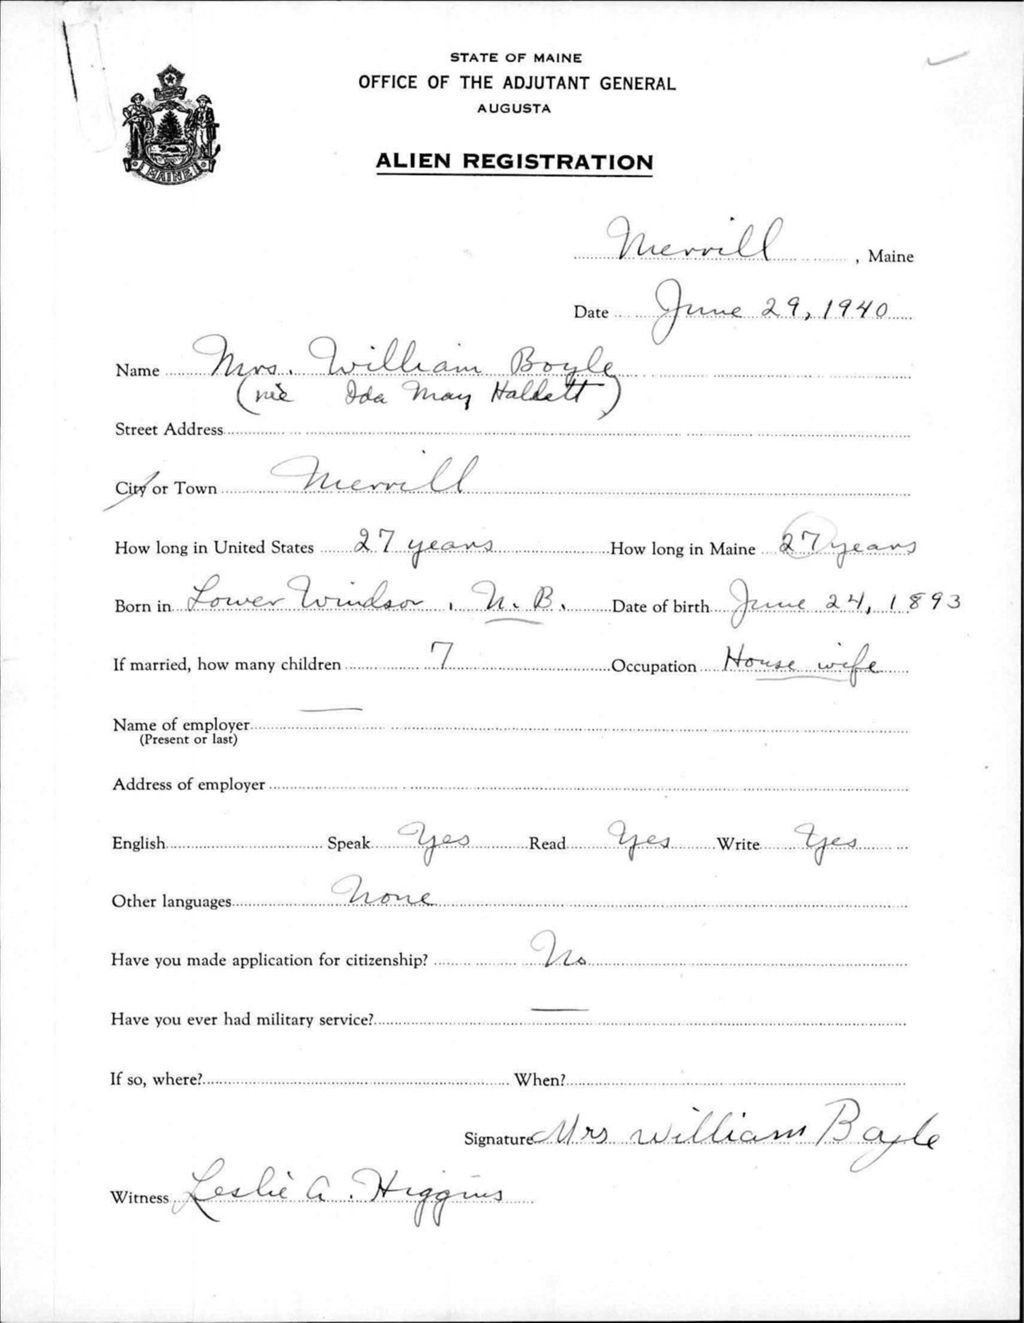 STATE OF MAINE
OFFICE OF THE ADJUTANT GENERAL
AUGUSTA
ALIEN REGISTRATION
MAINE
Merrill, Maine
Date June 29, 1940
Name Mrs. William Boyle
(neè Ida May Hallett)
Street Address
City or Town Merrill
How long in United States 27 years How long in Maine 27 years
Born in Lower Windsor, N. B. Date of birth June 24, 1893
If married, how many children 7 Occupation House wife
Name of employer —
(Present or last)
Address of employer
English Speak Yes Read Yes Write Yes
Other languages None
Have you made application for citizenship? No
Have you ever had military service? —
If so, where? When?
Signature Mrs William Boyle
Witness Leslie A. Higgins